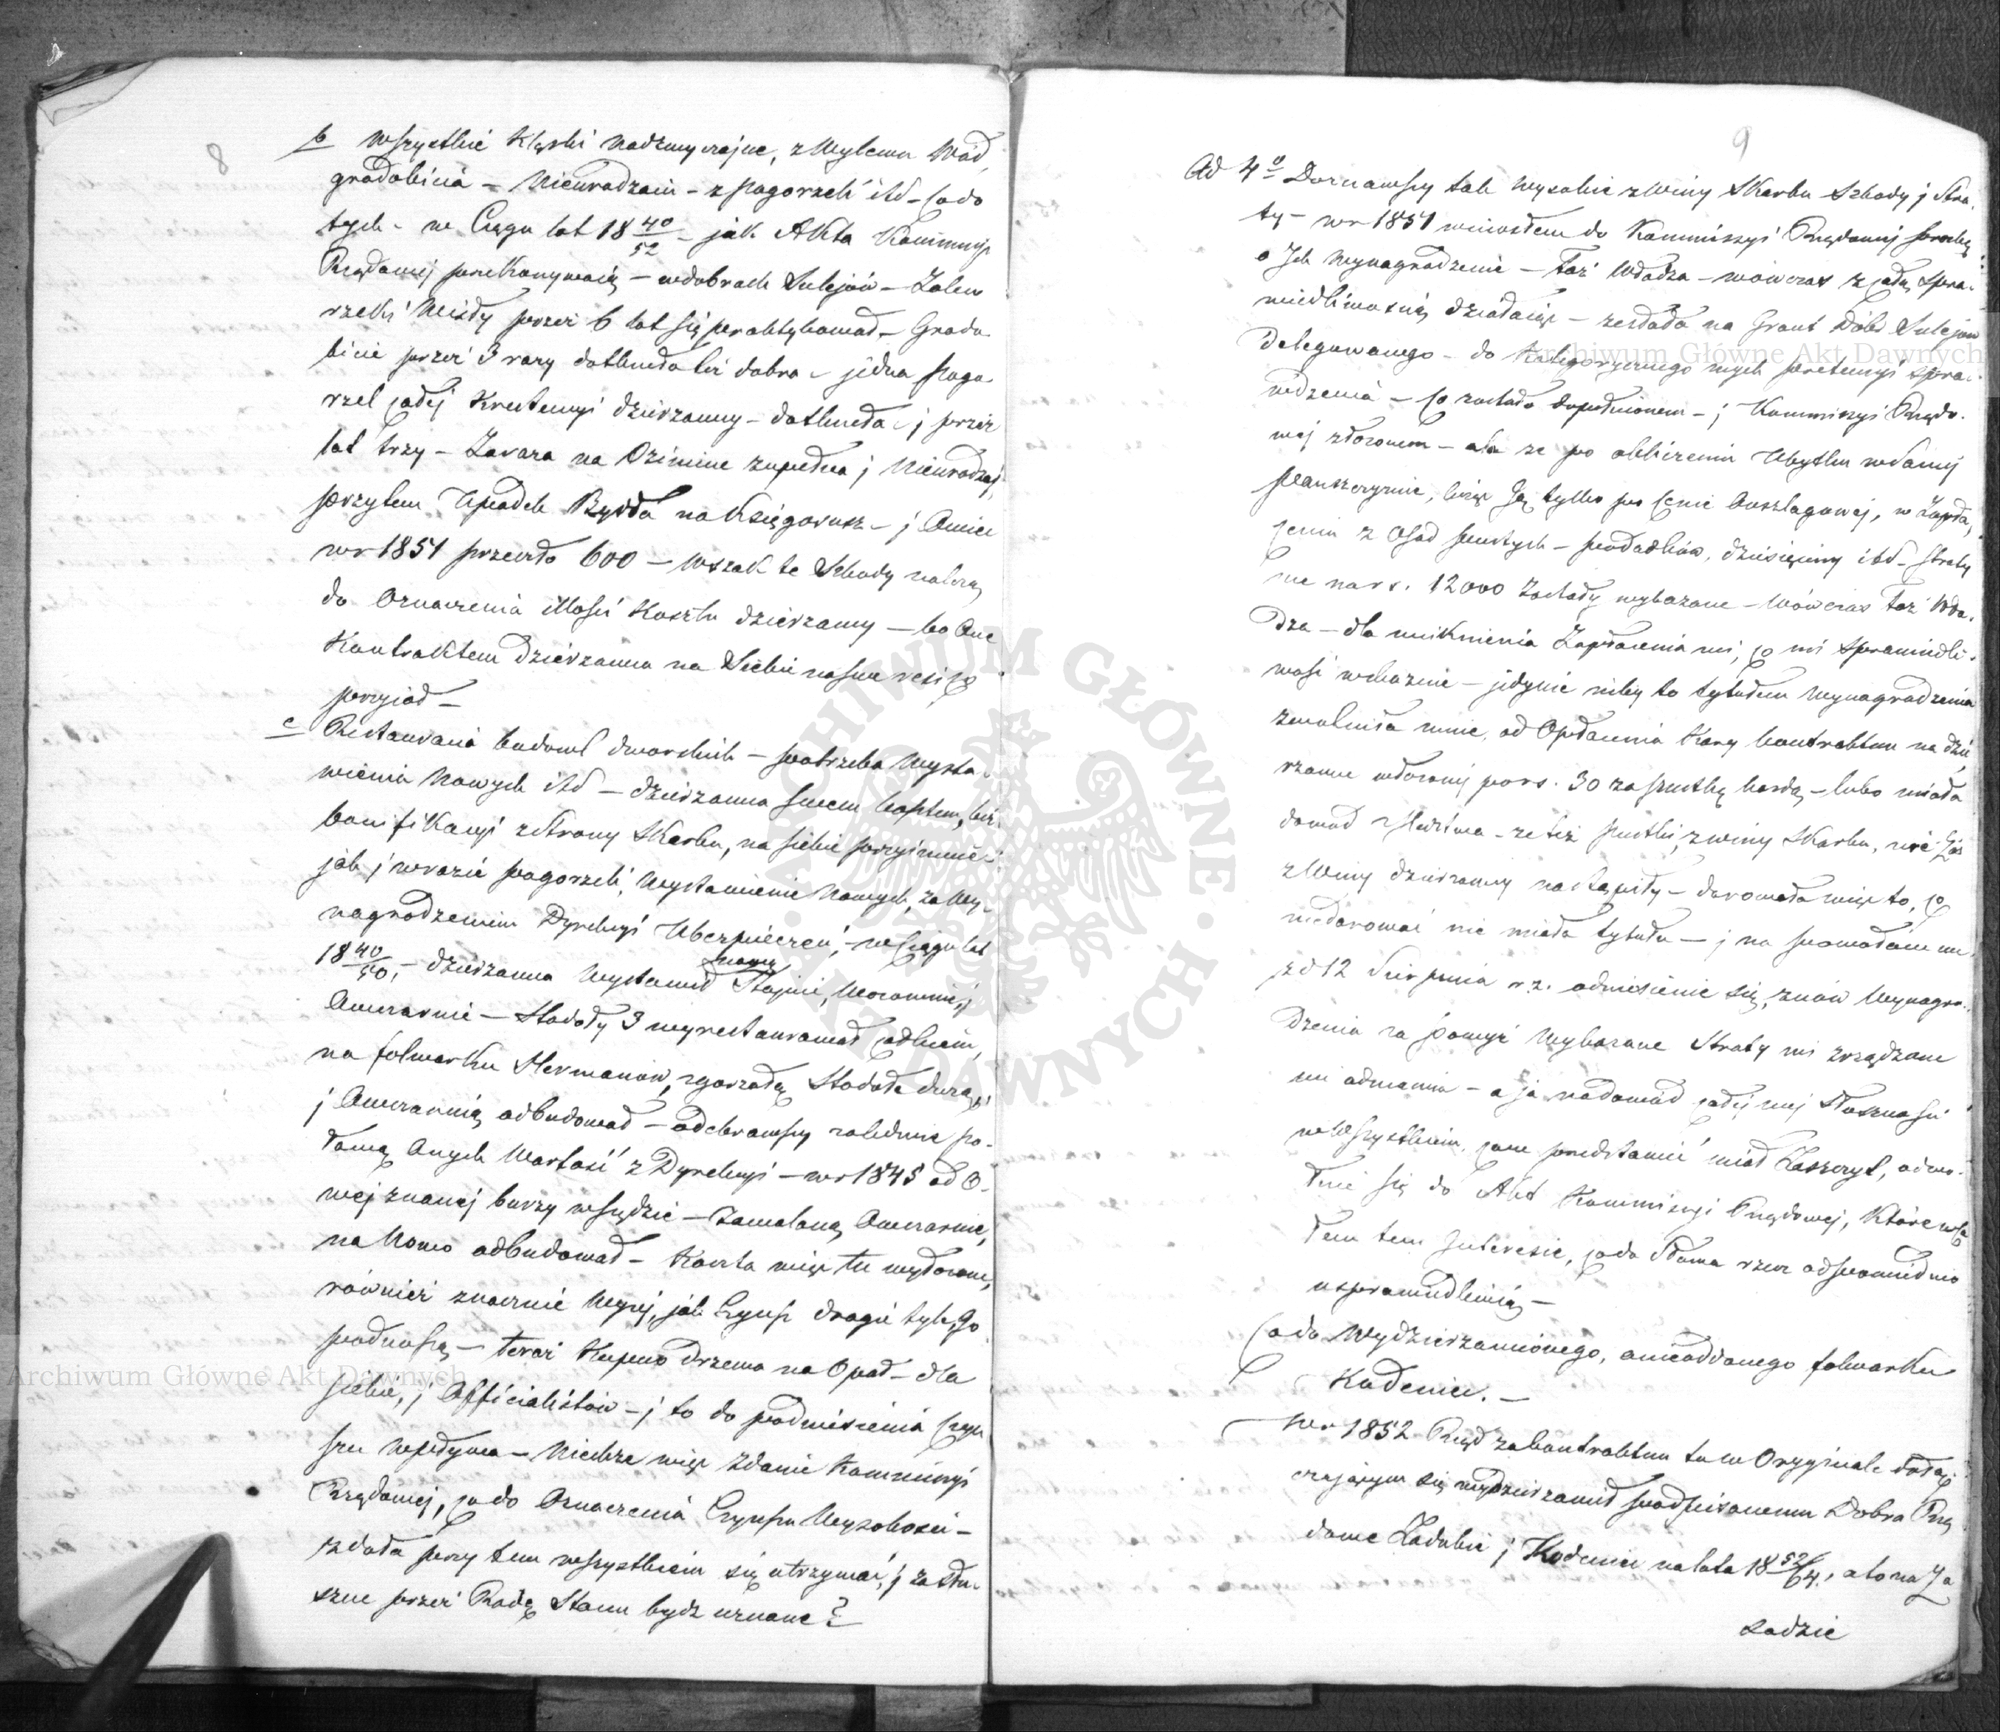 8
b wszystkie Klęski nadzwyczajne, z Wylewu Wód
gradobicia – Nieurodzaiu – z pogorzeli itd – co do
tych – w Ciągu lat 18 40/52 – jak Akta Kommissyi
Rządowej przekonywaią – w dobrach Sulejów – Zalew
rzeki przez 6 lat się praktykował – Grado-
bicie przez 3 razy dotknęło też dobra – jedna pogo-
rzel całej Krestencyi dzierzawcy – dotknęła – j przez
lat trzy – Zaraza na Oziminę zupełna j Nieurodzaj,
przytem Upadek Bydła na Księgosusz – j Owiec
w r 1851 przeszło 600 – wszak te Szkody należą
do Oznaczenia illości Kosztu dzierzawy – bo One
Kontraktem dzierzawca na Siebie
przyjął –
c Restauracia budowl dworskich – potrzeba Wysta-
wienia Nowych itd – dzierzawca swem kosztem, bez
bonifikacyi z Strony Skarbu, na siebie przyimuie –
jak j w razie pogorzeli, Wystawienie Nowych, za Wy-
nagrodzeniem Dyrekcyi Ubezpieczeń, – w Ciągu lat
18 40/50, – dzierzawca Wystawił nową Stajnię, Wozownię j
Owczarnię – Stodoły 3 wyrestaurował całkiem,
na folwarku Hermanów, zgorzałą Stodołę dużą,
j Owczarnią odbudował – odebrawszy zaledwie po-
łowę Onych Wartości z Dyrekcyi – w r 1845 od O-
wej znanej burzy wszędzie – Zawaloną Owczarnię,
na Nowo odbudował – Koszta więc tu wyłożone,
również znacznie Wyżej, jak Czynsz drogie tyle, Go
podnoszą – teraz Kupno drzewa na Opał – dla
siebie, j Officialistów – j to do podniesienia Czyn
szu wpływa – Niechże więc zdanie Kommissyi
Rządowej, co do Oznaczenia Czynszu Wysokości –
zdoła przy tem wszystkiem się utrzymać, j za Słu-
szne przez Radę Stanu bydz uznane?
9
Ad 4º Doznawszy tak wysokie z Winy Skarbu Szkody j Stra-
ty – w r 1851 wniosłem do Kommissyi Rządowej prośbę
o Ich Wynagrodzenie – Taż Władza – wówczas z całą spra-
wiedliwością działając – zesłała na Grunt Dóbr Sulejów
Delegowanego – do Kategorycznego mych pretensyi spra-
wdzenia – Co zostało dopełnionem – j Kommissyi Rządo-
wej złożonem – ale że po obliczeniu Ubytku w Samej
Pańszczyznie, licząc Ją tylko po Cenie Anszlagowej, w Zapła-
ceniu z Osad pustych – podatków, dziesięciny itd – Straty
me na r s. 12000 Zostały wykazane – Wówczas Taż Wła-
dza – dla uniknienia Zapłacenia mi, co mi Sprawiedli-
wość wskazuie – jedynie niby to tytułem Wynagrodzenia
zwolniła mnie, od Opłacenia Kary kontraktem na dzie
rzawcę włożonej po r s. 30 za pustkę każdą – lubo miała
dowód z Sledztwa – że też pustki, z winy Skarbu, nie zaś
z Winy dzierzawcy nastąpiły – darowała więc to, co
niedarować nie miała tytułu – j na powołane me
z d 12 Sierpnia r. z. odniesienie się, znów Wynagro-
dzenia za powyż Wykazane Straty mi zrządzone
mi odmawia – a ja na dowód całej mej Słuszności
w Wszystkiem, com przedstawić miał Zaszczyt, odwo-
łuię się do Akt Kommissyi Rządowej, które w Ca
łem tem Interesie, co do Słowa rzecz odpowiednio
usprawiedliwią –
Co do Wydzierzawionego, a nieoddanego folwarku
Kodeniec. –
W r 1852 Rząd za kontraktem tu w Oryginale dołą-
czającym się wydzierzawił podpisanemu Dobra Rzą
dowe Zadubie j Kodeniec na lata 18 52/64, a to na Za
sadzie